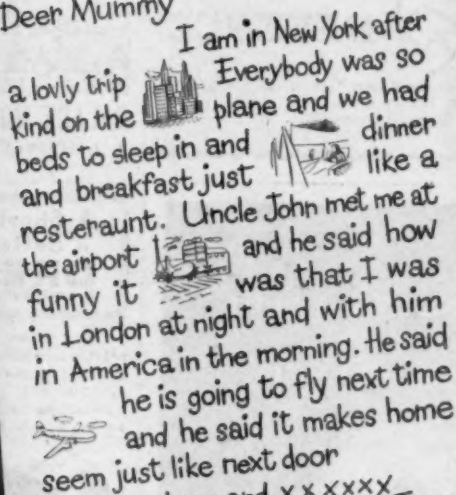 Deer Mummy
I am in New York after
a lovly trip Everybody was so
kind on the plane and we had
beds to sleep in and dinner
and breakfast just like a
resteraunt. Uncle John met me at
the airport and he said how
funny it was that I was
in London at night and with him
in America in the morning. He said
he is going to fly next time
and he said it makes home
seem just like next door
and xxxxxx